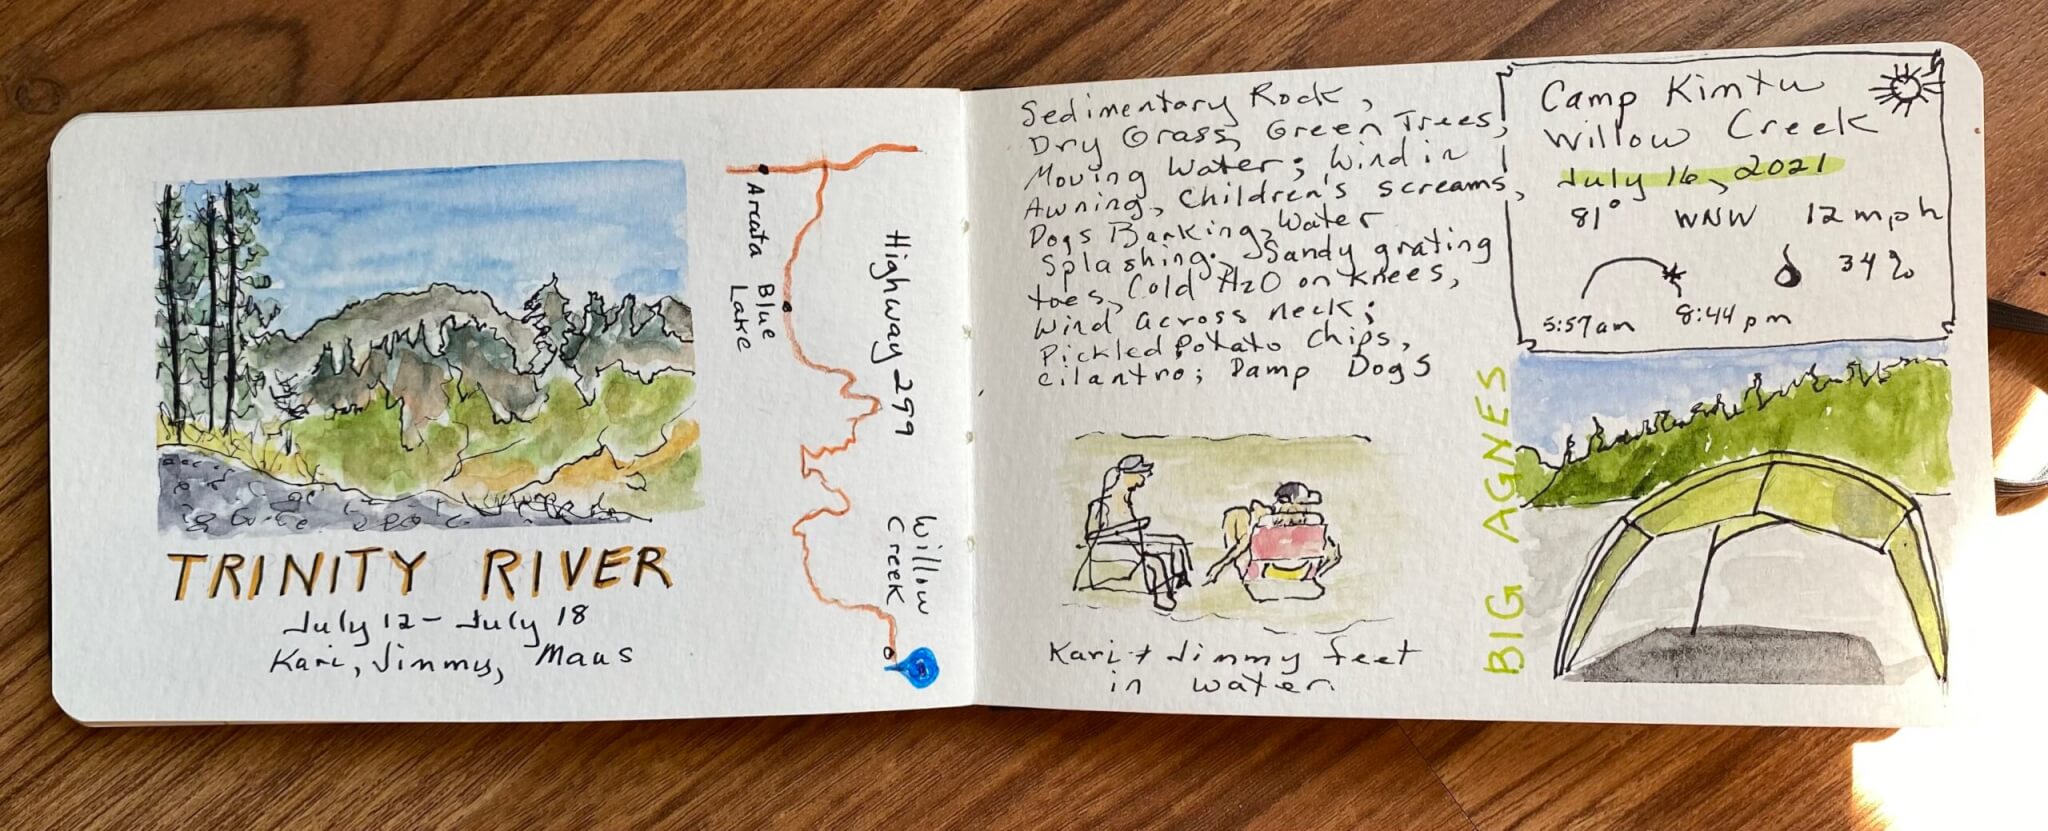 TRINITY RIVER
July 12 - July 18
Kari, Jimmy, Maus
Arcata
Blue
Lake
Highway 299
Willow
Creek
Sedimentary Rock,
Dry Grass, Green Trees,
Moving Water; Wind in
Awning, Children's screams,
Dogs Barking, Water
Splashing; Sandy grating
toes, Cold H2O on knees,
Wind across neck;
Pickled Potato Chips,
cilantro; Damp Dogs
Kari + Jimmy feet
in water.
Camp Kimtu
Willow Creek
July 16, 2021
81° WNW 12 mph
34%
5:57 am 8:44 pm
BIG AGNES